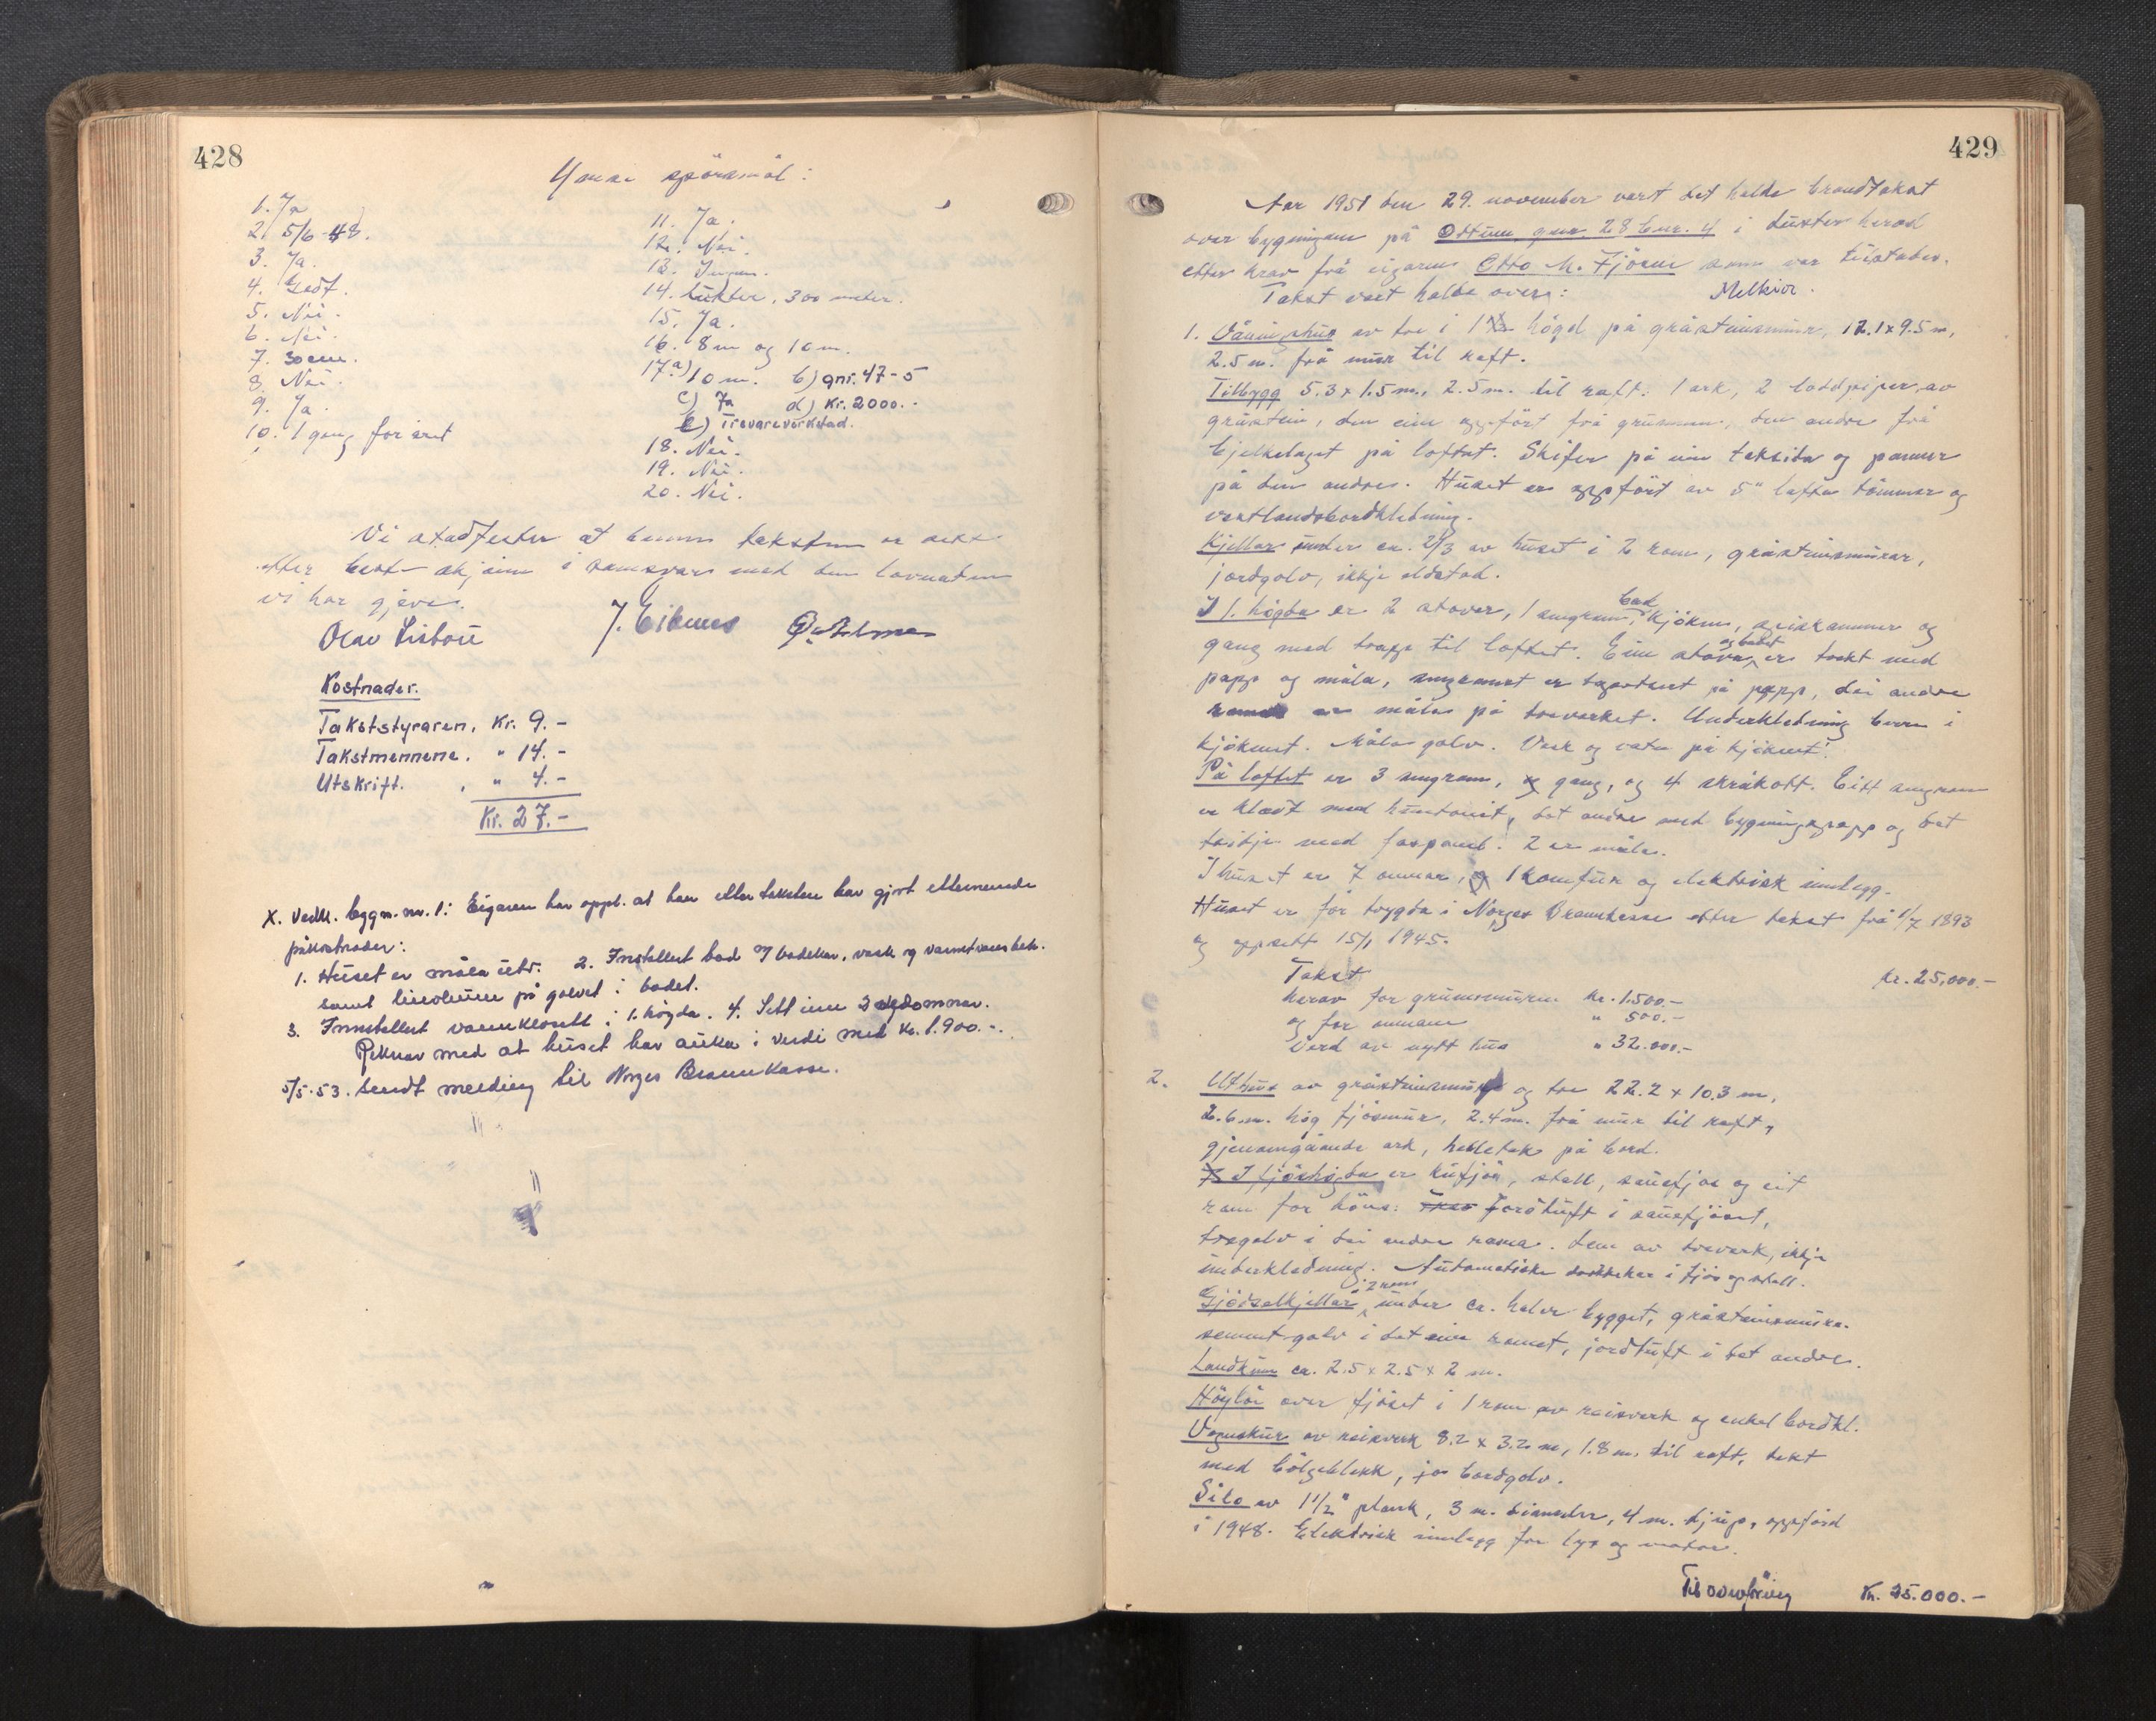 428
Ymse spörsmål:
1. Ja
2. 5/6-48.
3. Ja.
4. Godt.
5. Nei.
6. Nei.
7. 30 cm.
8. Nei.
9. Ja.
10. 1 gang for året
11. Ja.
12. Nei.
13. Ingen.
14. Lukter, 300 meter.
15. Ja.
16. 8 m og 10 m.
17. a) 10 m. b) gnr. 47-5
c) Ja d) Kr. 2000.-
e) Trevareverkstad.
18. Nei.
19. Nei.
20. Nei.
Vi stadfester at denne taksten er sett
etter beste skjönn i samsvar med den lovnaden
vi har gjeve.
Olav Lisböe J. Eikenes
Kostnader.
Takststyraren, Kr. 9.-
Takstmennene. " 14.-
Utskrift. " 4.-
Kr. 27.-
X. Vedk. bygn. nr. 1: Eigaren har oppl. at han etter taksten har gjort etternemnde
påkostnader:
1. Huset er måla utv. 2. Installert bad m/ badekar, vask og varmtvassbeh.
samt linoleum på golvet i badet.
3. Innstallert vannklosett i 1. høgda. 4. Sett inn 2 omnar.
Reknar med at huset har auka i verdi med Kr. 1.900.-.
5/5-53. Sendt melding til Norges Brannkasse.
429
Aar 1951 den 29. november vart det halde brandtakst
over bygningane på Ottum gnr 28 bnr. 4 i Luster herad
etter krav frå eigaren Otto M. Fjörne som var tilstades.
Melkior.
Takst vart halde over:
1. Våningshus av tre i 1 högd på gråsteinsmur, 12.1 x 9.5 m,
2.5 m. frå mur til raft.
Tilbygg 5.3 x 1.5 m., 2.5 m. til raft. 1 ark, 2 loddpiper av
gråstein, den eine oppfört frå grunnen, den andre frå
bjelkelaget på loftet. Skifer på ein takside og panner
på den andre. Huset er oppfört av 5" lafta tömmer og
vestlandsbordkledning.
Kjellar under ca. 2/3 av huset i 2 rom, gråsteinsmurar,
jordgolv, ikkje eldstad.
I 1. högda er 2 stover, 1 sengrom, bad, kjöken, spiskammer og
gang med trapp til loftet. Eine stova og badet er trekt med
papp og måla, sengromet er tapetsert på papp, dei andre
romma er måla på treverket. Underkledning berre i
kjökenet. Måla golv. Vask og vatn på kjökenet.
På loftet er 3 sengrom, gang, og 4 skråkott. Eitt sengrom
er kledt med huntonit, det andre med bygningspapp og det
tridje med faspanel. 2 er måla.
I huset er 7 omnar, 1 komfur og elektrisk innlegg.
Huset er för trygda i Norges Brannkasse etter takst frå 1/7 1893
og oppsett 15/1 1945.
Takst Kr. 25,000.-
herav for grunnmuren Kr. 1.500.-
og for omnane " 500.-
Verd av nytt hus " 32.000.-
2. Uthus av gråsteinsmur og tre 22.2 x 10.3 m,
2.6 m. hög fjösmur, 2.4 m. frå mur til raft,
gjennomgåande ark, helletak på bord.
I fjöshögda er kufjös, stall, sauefjös og eit
rom for höns. Jordtuft i sauefjöset,
tregolv i dei andre romma. Lem av treverk, ikkje
underkledning. Automatiske drikkekar i fjös og stall.
Gjödselkjellar, 2 rom under ca. halve bygget, gråsteinsmurar.
sementgolv i det eine romet, jordtuft i det andre.
Landkum ca. 2.5 x 2.5 x 2 m.
Höyloe over fjöset i 1 rom av reisverk og enkel bordkl.
Vognskur av reisverk 8.2 x 3.2 m, 1.8 m. til raft, tekt
med bölgeblekk, bordgolv.
Silo av 1 1/2" plank, 3 m. diameter, 4 m. djup, oppförd
i 1948. Elektrisk innlegg for lys og motor.
Til overföring Kr. 25.000.-